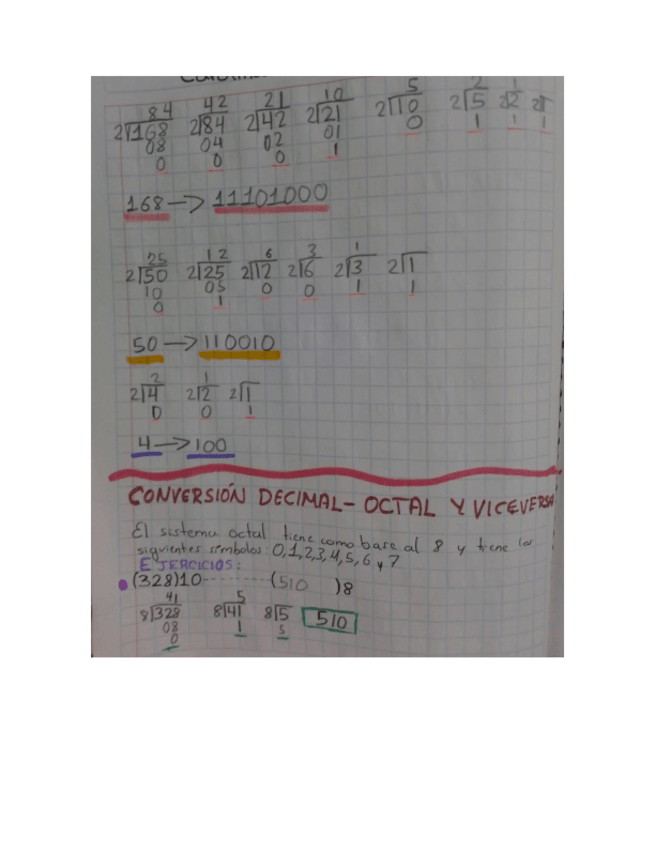 84 42 21 10 5 2 1
2 168 2 84 2 42 2 21 2 10 2 5 2 2 2
08 04 02 01 0 1 1 1
0 0 0 1
168 → 11101000
25 12 6 3 1
2 50 2 25 2 12 2 6 2 3 2 1
10 05 0 0 1 1
0 1
50 → 110010
2 1
2 4 2 2 2 1
0 0 1
4 → 100
CONVERSIÓN DECIMAL - OCTAL Y VICEVERSA
El sistema octal tiene como base al 8 y tiene los
siguientes símbolos: 0,1,2,3,4,5,6 y 7
EJERCICIOS:
(328)10 ---------- (510 )8
41 5
8 328 8 41 8 5 510
08 1 5
0